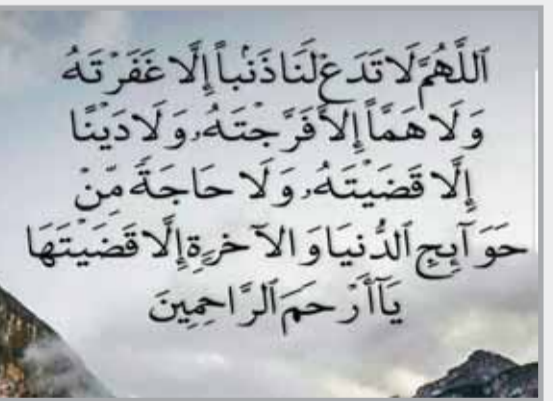 ٱللَّهُمَّ لَا تَدَعْ لَنَا ذَنْباً إِلَّا غَفَرْتَهُ
وَلَا هَمّاً إِلَّا فَرَّجْتَهُ، وَلَا دَيْنًا
إِلَّا قَضَيْتَهُ، وَلَا حَاجَةً مِّنْ
حَوَآئِجِ ٱلدُّنْيَا وَالآخِرَةِ إِلَّا قَضَيْتَهَا
يَآأَرْحَمَ ٱلرَّاحِمِينَ